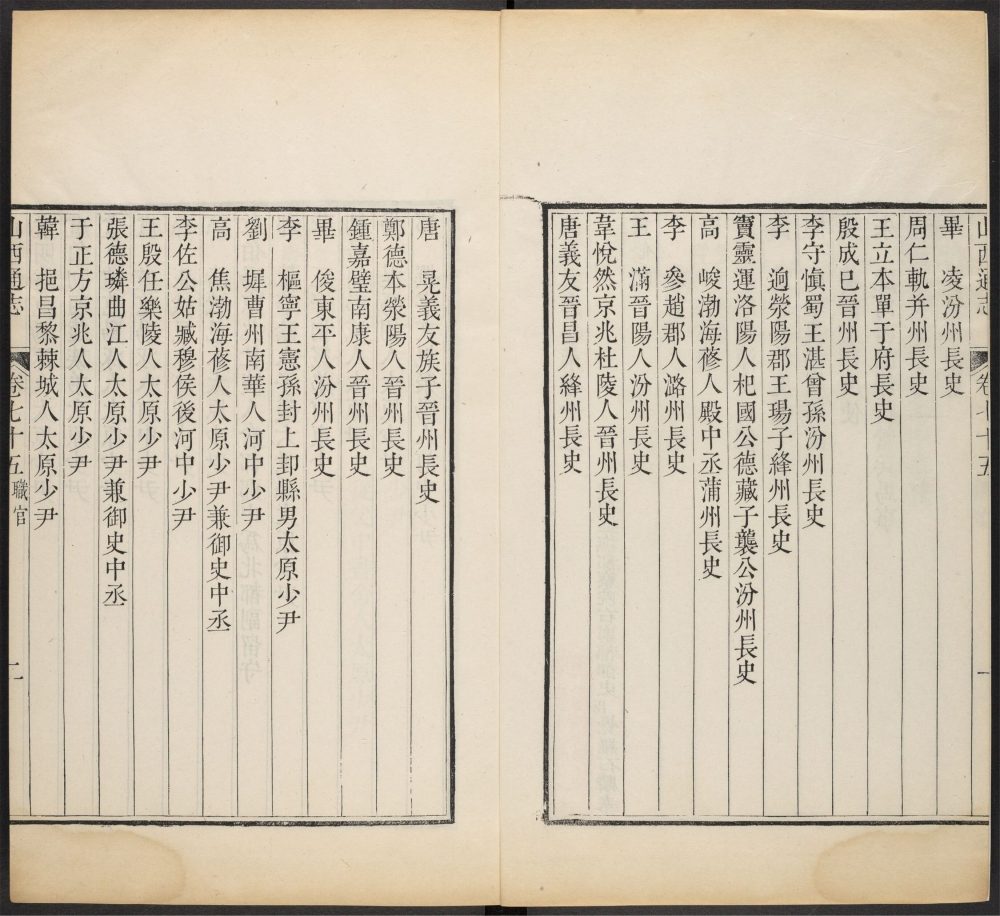 山西通志 卷七十五 一
畢　凌汾州長史
周仁軌并州長史
王立本單于府長史
殷成巳晉州長史
李守慎蜀王湛曾孫汾州長史
李　逈滎陽郡王瑒子絳州長史
竇靈運洛陽人杞國公德藏子襲公汾州長史
高　峻渤海蓨人殿中丞蒲州長史
李　參趙郡人潞州長史
王　滿晉陽人汾州長史
韋悅然京兆杜陵人晉州長史
唐義友晉昌人絳州長史
唐　晃義友族子晉州長史
鄭德本滎陽人晉州長史
鍾嘉璧南康人晉州長史
畢　俊東平人汾州長史
李　樞寧王憲孫封上邽縣男太原少尹
劉　墀曹州南華人河中少尹
高　焦渤海蓨人太原少尹兼御史中丞
李佐公姑臧穆侯後河中少尹
王殷任樂陵人太原少尹
張德璘曲江人太原少尹兼御史中丞
于正方京兆人太原少尹
韓　挹昌黎棘城人太原少尹
山西通志 卷七十五 職官 二